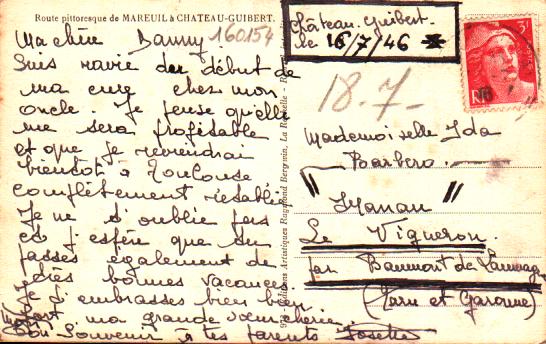 Route pittoresque de MAREUIL à CHATEAU-GUIBERT.
160154
Ma chère Danny
Suis ravie du début de
ma cure chez mon
oncle. Je pense qu'elle
me sera profitable
et que je reviendrai
bientôt à Toulouse
complètement rétablie
Je ne t'oublie pas
et j'espère que tu
passes également de
très bonnes vacances.
Je t'embrasses bien fort
ma grande sœur chérie.
Bon souvenir à tes parents Josette
Editions Artistiques Raymond Bergevin, La Rochelle
Château-Guibert.
le 16/7/46
18.7-
3F
RF
Mademoiselle Ida
Barbero
Le Vigneron.
par Beaumont de Lomagne
(Tarn et Garonne)